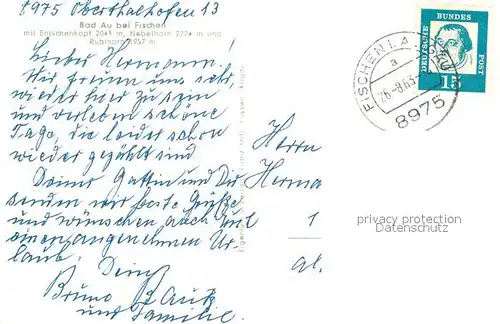 8975 Oberthalhofen 13
Bad Au bei Fischen
mit Entschenkopf 2043 m, Nebelhorn 2224 m und
Rubihorn 1957 m
Lieber Hermann!
Wir freuen uns sehr,
wieder hier zu sein
und verleben schöne
Tage, die leider schon
wieder gezählt sind
Deiner Gattin und Dir
senden wir beste Grüße
und wünschen auch Euch
einen angenehmen Ur-
laub. Dein
Bruno
und Familie.
Herrn
Herma
1
al.
FISCHEN I. A
a
26.-8.63
8975
DEUTSCHE
BUNDES
POST
15
privacy protection
Datenschutz